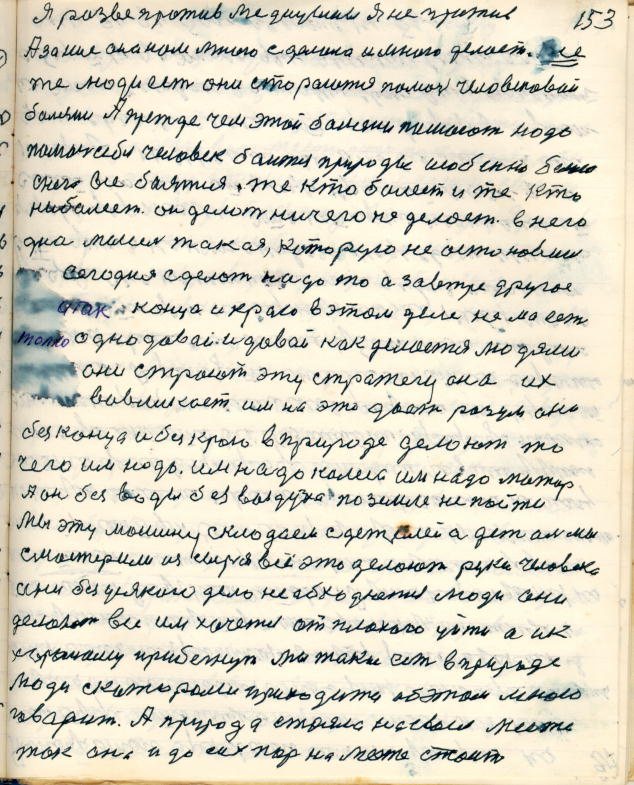 153
Я разве против медицины Я не против
А за нее она нам много сделала и много делает. Все
те люди ест они стораются помоч человековой
болезни А прежде чем этой болезни помогот надо
помоч себи человек боится природы особенно
Все боятия. те кто болеет и те кто
небалеет. он делот ничего не делоет. в него
дна такая, которую не остоновиш
сегодня сделот надо то а завтре другое
а так конца и краю в этом деле не ма ест
толко одно давай и давай как делается людями
они строют эту стратегу она их
вовликает им на это дает разум они
без конца и без краю в природе делоют то
чего им надо, им надо колеса им надо матор
А он без воды без воздуха по земле не пойти
Мы эту машину склодаем с детелей а дет али мы
смастерили из сырия всё это делоют руки человека
они без усякого дело необходются люди они
делоют все им хочется от плохого уйти а ик
хорошому прибегнут Мы таки ест в природе
Люди с которыми приходится об этом много
говарит. А природа стояла на своем месте
так она и до сих пор на месте стоит